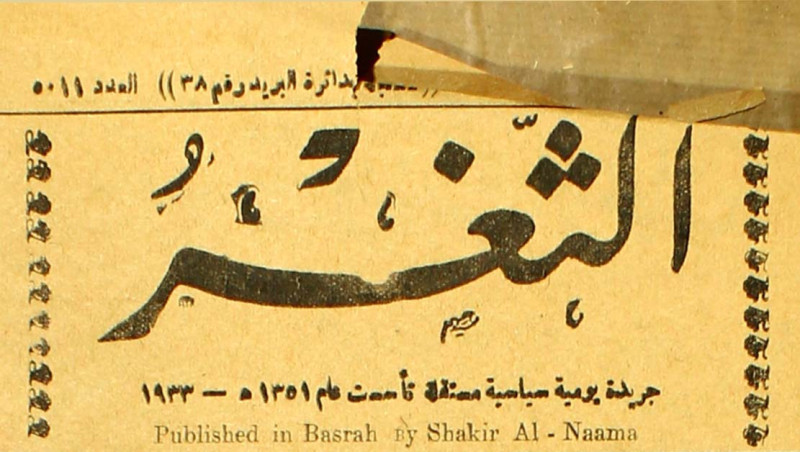 بدائرة البريد رقم ٣٨)) العدد ٥٠١١
الثَّغْرُ
جريدة يومية سياسية مستقلة تأسست عام ١٣٥١ ه — ١٩٣٣
Published in Basrah By Shakir Al - Naama